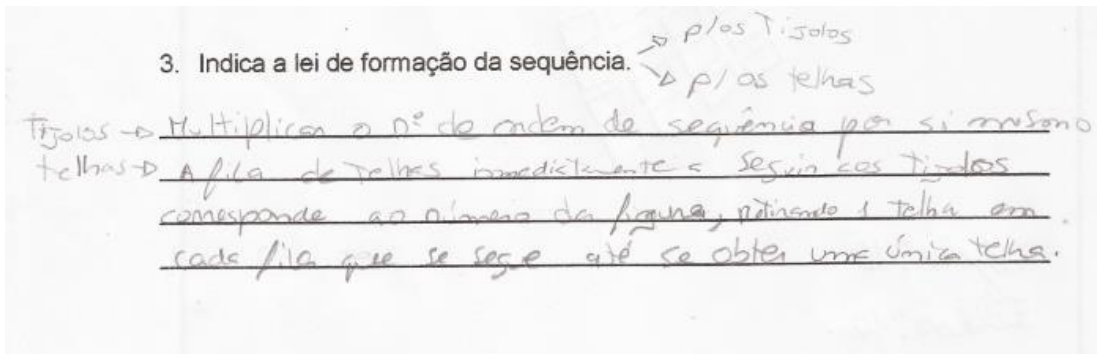 p/os Tijolos
3. Indica a lei de formação da sequência.
p/ as telhas
Tijolos → Multiplicar o nº de ordem de sequência por si mesmo
telhas → A fila de Telhas imediatamente a seguir aos tijolos
corresponde ao número da figura, retirando 1 telha em
cada fila que se segue até se obter uma única telha.